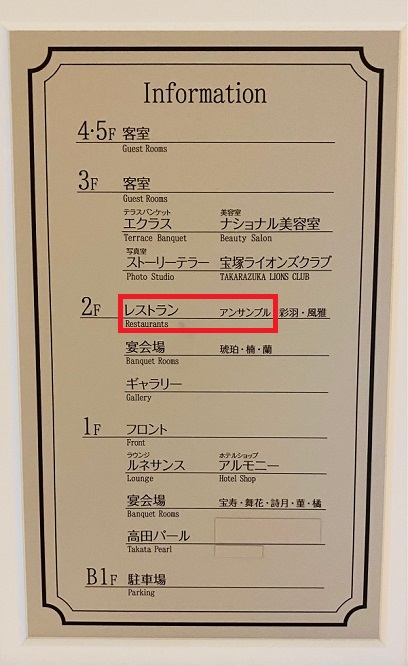 Information
4・5F 客室
Guest Rooms
3F 客室
Guest Rooms
テラスバンケット 美容室
エクラス ナショナル美容室
Terrace Banquet Beauty Salon
写真室
ストーリーテラー 宝塚ライオンズクラブ
Photo Studio TAKARAZUKA LIONS CLUB
2F レストラン アンサンブル 彩羽・風雅
Restaurants
宴会場 琥珀・楠・蘭
Banquet Rooms
ギャラリー
Gallery
1F フロント
Front
ラウンジ ホテルショップ
ルネサンス アルモニー
Lounge Hotel Shop
宴会場 宝寿・舞花・詩月・菫・橘
Banquet Rooms
高田パール
Takata Pearl
B1F 駐車場
Parking